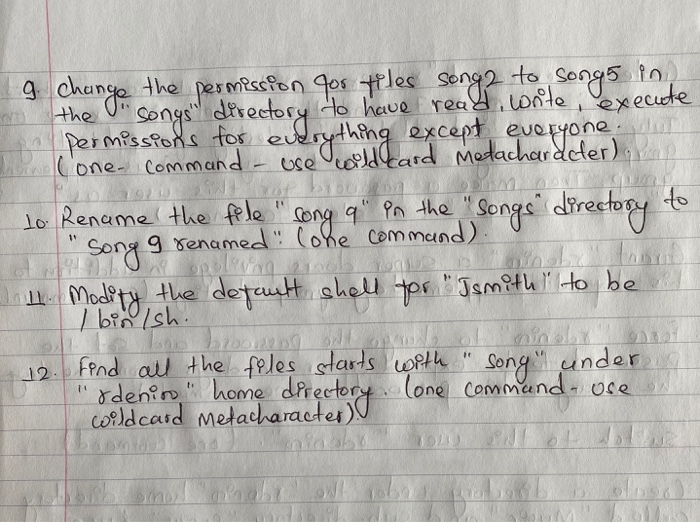 9. change the permission for files song2 to song5 in
the "songs" directory to have read, write, execute
permissions for everything except everyone.
(one-command - use wildcard Metacharacter).
10. Rename the file "song 9" in the "songs" directory to
"song 9 renamed". (one command).
11. Modify the default shell for "Jsmith" to be
/bin/sh.
12. Find all the files starts with "song" under
"rdeniro" home directory. (one command - use
wildcard Metacharacter).